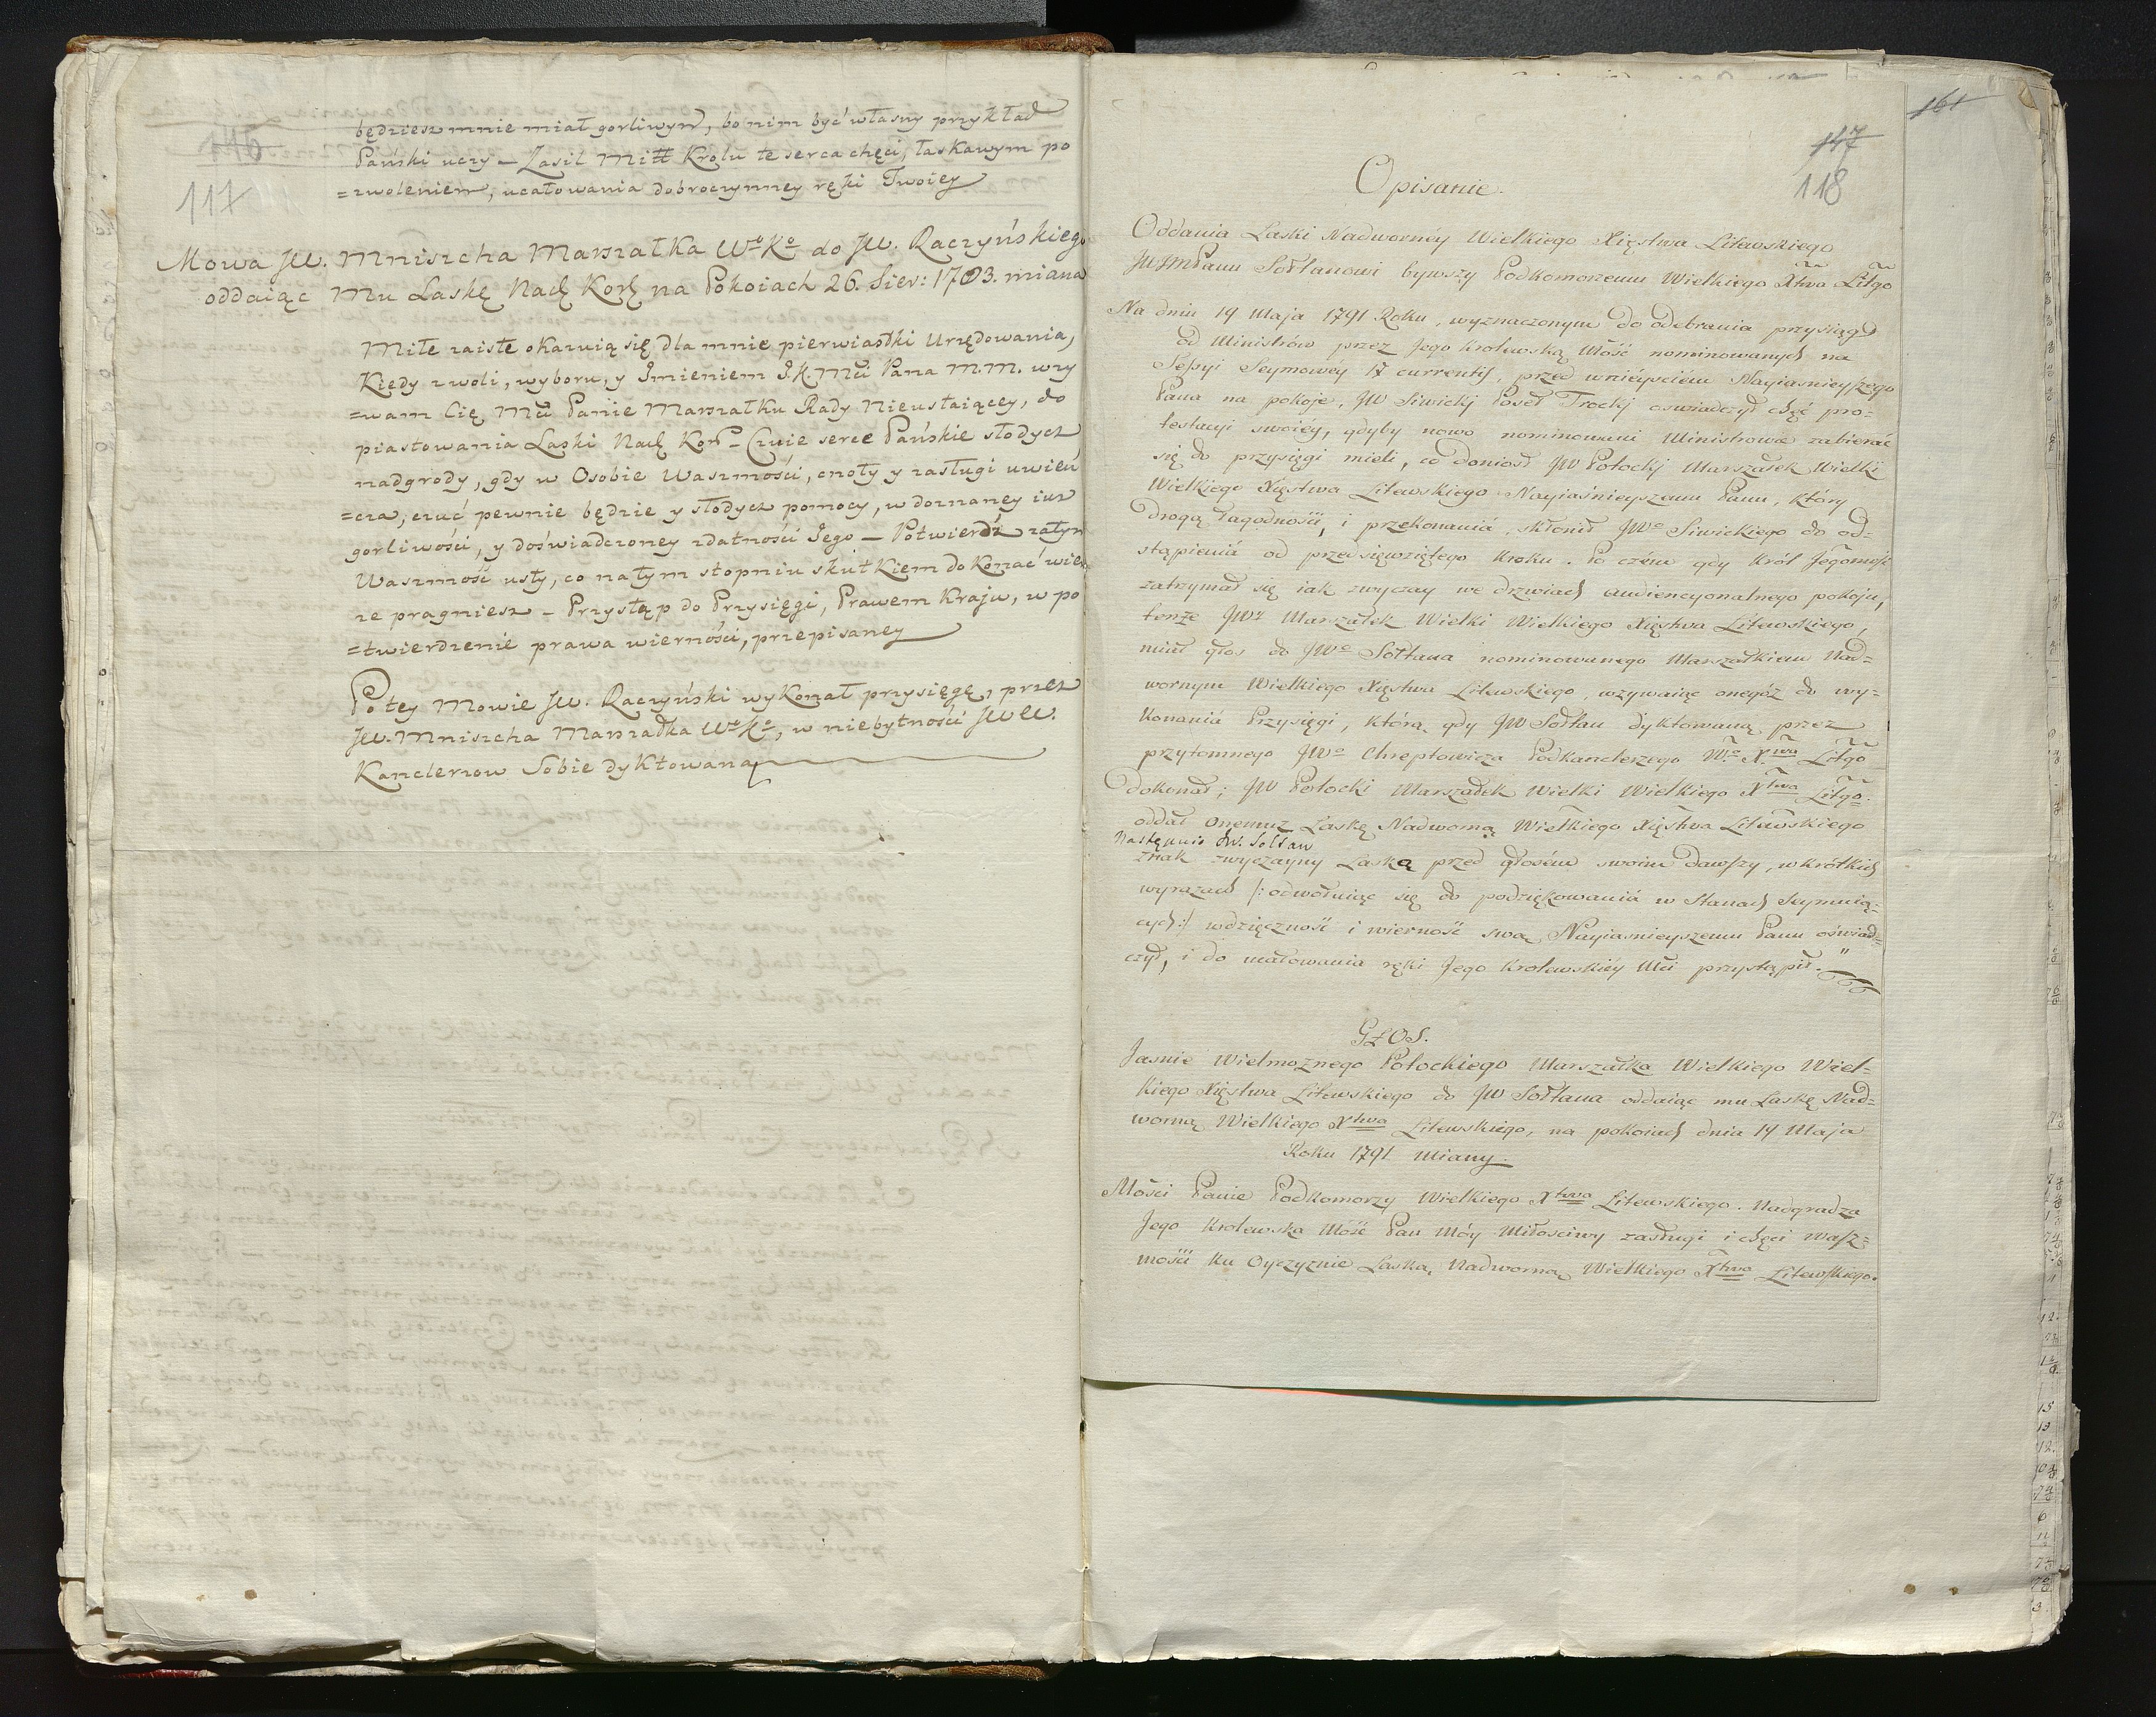 146
117
będziesz mnie miał gorliwym, bo nim być własny przykład
Pański uczy – Zasil Miłł Krolu te serca chęci, łaskawym po
=zwoleniem, ucałowania dobroczynney ręki Twoiey
Mowa JW. Mniszcha Marszałka Wo Ko do JW. Raczyńskiego
oddaiąc Mu Laskę Nadę Korę na Pokoiach 26. Sier: 1783. miana
Miłe zaiste okazuią się dla mnie pierwiastki Urzędowania,
Kiedy z woli, wyboru, y Jmieniem J.K.Mci Pana M.M. wzy
=wam Cię Mci Panie Marszałku Rady Nieustaiącey, do
piastowania Laski Nadę Korę – Czuie serce Pańskie słodycz
nadgrody, gdy w Osobie Waszmości, cnoty y zasługi uwień
=cza, czuć pewnie będzie y słodycz pomocy, w doznaney iuż
gorliwości, y doświadczoney zdatności Jego – Potwierdź zatym
Waszmość usty, co na tym stopniu skutkiem dokonać wier
ze pragniesz – Przystąp do Przysięgi, Prawem Kraju, w po
=twierdzenie prawa wierności, przepisaney
Po tey Mowie JW. Raczyński wykonał przysięgę, przez
JW. Mniszcha Marszałka Wo Ko, w niebytności JWW.
Kanclerzow Sobie dyktowaną
161
147
118
Opisanie.
Oddania Laski Nadwornéy Wielkiego Xięstwa Litewskiego
JWJMPanu Sołtanowi bywszy Podkomorzemu Wielkiego Xtwa Litgo
Na dniu 19 Maja 1791 Roku, wyznaczonym do odebrania przysiąg
od Ministrów przez Jego Krolewską Mość nominowanych na
Sessyi Seymowéy 17 currentis, przed wniéysciem Nayiasnieyszego
Pana na pokoje, JW Siwickj Poseł Trockj oswiadczył chęć pro=
testacyi swoiéy, gdyby nowo nominowani Ministrowie zabierać
się do przysięgi mieli, co doniosł JW Potockj Marszałek Wielki
Wielkiego Xięstwa Litewskiego Nayiaśnieyszemu Panu, który
drogą łagodności, i przekonania, skłonił JWo Siwickiego do od=
stąpieniá od przedsięwziętego kroku. Po czém gdy Król Jegomość
zatrzymał się iak zwyczay we drzwiach audiencyonalnego pokoju,
tenże JWy Marszałek Wielki Wielkiego Xięstwa Litewskiego,
miał głos do JWo Sołtana nominowanego Marszałkiem Nad=
wornym Wielkiego Xięstwa Litewskiego, wzywaiąc onegóż do wy=
konaniá Przysięgi, którą gdy JW Sołtan dyktowaną przez
przytomnego JWo Chreptowicza Podkanclerzego Wo Xtwa Litgo
dokonał; JW Potocki Marszałek Wielki Wielkiego Xtwa Litgo.
oddał onemuz Laskę Nadworną Wielkiego Xięstwa Litewskiego
Następnie JW. Soltan
znak zwyczayny Laską przed głosém swoim dawszy, w krótkich
wyrazach /: odwołuiąc się do podziękowaniá w Stanach Seymuią=
cych :/ wdzięczność i wierność swą Nayiasnieyszemu Panu oświad=
czył, i do ucałowania ręki Jego Krolewskiéy Mci przystąpił.
GŁOS.
Jasnie Wielmoznego Potockiego Marszałka Wielkiego Wiel=
kiego Xięstwa Litewskiego do JW Sołtana oddaiąc mu Laskę Nad=
worną Wielkiego Xtwa Litewskiego, na pokoiach dnia 19 Maja
Roku 1791 miany.
Mości Panie Podkomorzy Wielkiego Xtwa Litewskiego. Nadgradza
Jego Krolewska Mość Pan Móy Miłosciwy zasługi i chęci Wasz=
mości ku Oyczyznie Laską Nadworną Wielkiego Xtwa Litewskiego.